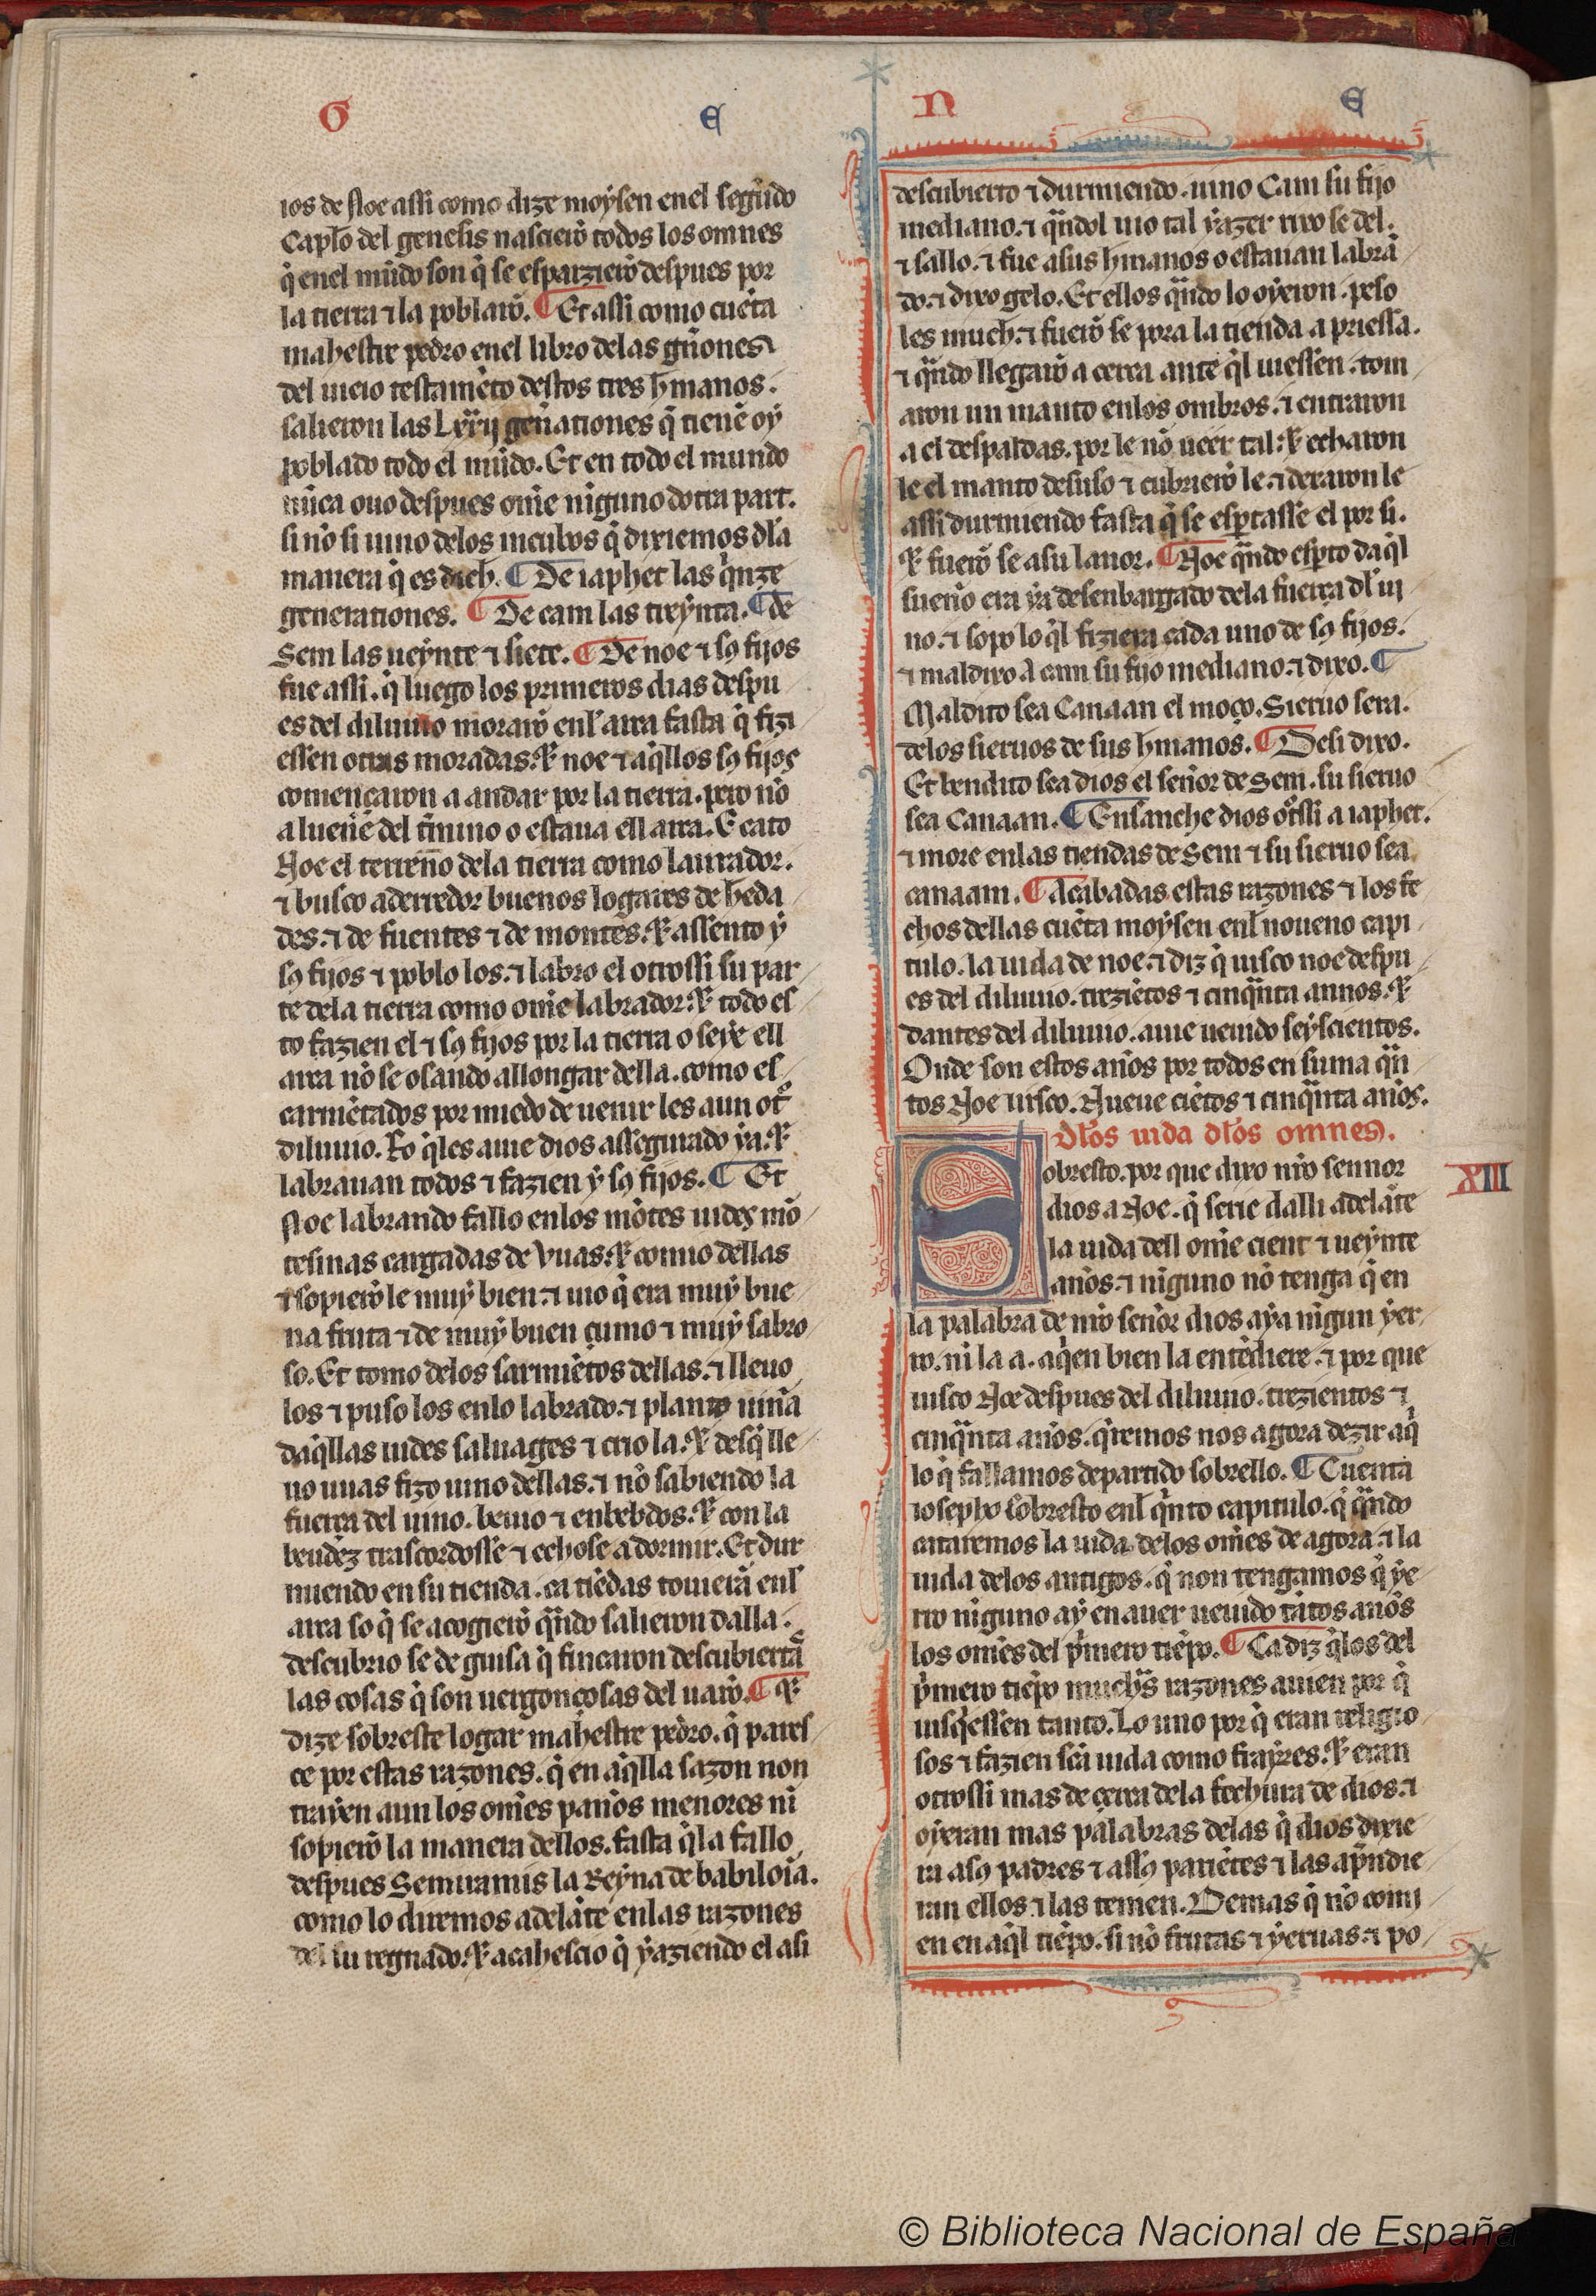 G E N E
ios de Noe assi como dize moysen enel segũdo
Capło del genesis nascierõ todos los omnes
q̃ enel mũdo son q̃ se esparzierõ despues por
la tierra ⁊ la poblarõ. ¶ Et assi como cuẽta
mahestre pedro enel libro delas gñones
del uieio testamẽto destos tres hmanos.
salieron las Lxxij geñationes q̃ tienẽ oy
poblado todo el mũdo. Et en todo el mundo
nũca ouo despues omẽ niguno dotra part.
si nõ si uino delos uiculos q̃ dixiemos dla
manera q̃ es dich. ¶ De iaphet las q̃nze
generationes. ¶ De cam las treynta. ¶ de
Sem las ueynte ⁊ siete. ¶ De noe ⁊ sꝯ fijos
fue assi. q̃ luego los primeros dias despu
es del diluuio morarõ enl arca fasta q̃ fizi
essen otras moradas. ⁊ noe ⁊ aq̃llos sꝯ fijos
començaron a andar por la tierra. pero nõ
a lueñe del t̃mino o estaua ell arca. E cato
Noe el terreño dela tierra como laurador.
⁊ busco aderredor buenos logares de heda
des. ⁊ de fuentes ⁊ de montes. ⁊ assento y
sꝯ fijos ⁊ poblo los. ⁊ labro el otrossi su par
te dela tierra como omẽ labrador. ⁊ todo es
to fazien el ⁊ sꝯ fijos por la tierra o seye ell
arca nõ se osando allongar della. como es
carmẽtados por miedo de uenir les aun ot̃º
diluuio. Lo q̃les auie dios assegurado ya. ⁊
labrauan todos ⁊ fazien y sꝯ fijos. ¶ Et
Noe labrando fallo enlos mõtes uides mõ
tesinas cargadas de Vuas. ⁊ comio dellas
⁊ sopierõ le muy bien. ⁊ uio q̃ era muy bue
na fruta ⁊ de muy buen çumo ⁊ muy sabro
so. Et tomo delos sarmiẽtos dellas. ⁊ lleuo
los ⁊ puso los enlo labrado. ⁊ planto uiña
daq̃llas uides saluages ⁊ crio la. ⁊ desq̃ lle
uo uuas fizo uino dellas. ⁊ nõ sabiendo la
fuerça del uino. beuio ⁊ enbebdos. ⁊ con la
beudez trascordosse ⁊ echose a dormir. Et dur
miendo en su tienda. ca tiẽdas touierã enl
arca so q̃ se acogierõ q̃ndo salieron dalla.
descubrio se de guisa q̃ fincaron descubiertã
las cosas q̃ son uergonçosas del uarõ. ¶ ⁊
dize sobreste logar mahestre pedro. q̃ pares
ce por estas razones. q̃ en aq̃lla sazon non
trayen aun los omẽs paños menores ni
sopierõ la manera dellos. fasta q̃ la fallo
despues Semiramis la Reyna de babiloĩa.
como lo diremos adelãte enlas razones
del su regnado. ⁊ acahescio q̃ yaziendo el asi
descubierto ⁊ durmiendo. uino Cam su fijo
mediano. ⁊ q̃ndol uio tal yazer rixo se del.
⁊ sallo. ⁊ fue asus hmanos o estauan labrã
do. ⁊ dixo gelo. Et ellos q̃ndo lo oyeron. peso
les much. ⁊ fuerõ se pora la tienda a priessa.
⁊ q̃ndo llegarõ a cerca ante q̃l uiessen. tom
aron un manto enlos ombros. ⁊ entraron
a el despaldas. por le nõ ueer tal. ⁊ echaron
le el manto desuso ⁊ cubrierõ le. ⁊ dexaron le
assi durmiendo fasta q̃ se esp̃tasse el por si.
⁊ fuerõ se asu lauor. ¶ Noe q̃ndo esp̃to daq̃l
sueño era ya desenbargado dela fuerça dl ui
no. ⁊ sopo lo q̃l fiziera cada uno de sꝯ fijos.
⁊ maldixo a cam su fijo mediano. ⁊ dixo. ¶
Maldito sea Canaan el moço. Sieruo sera.
delos sieruos de sus hmanos. ¶ Desi dixo.
Et bendito sea dios el señor de Sem. su sieruo
sea Canaan. ¶ Ensanche dios ot̃ssi a iaphet.
⁊ more enlas tiendas de Sem ⁊ su sieruo sea
canaam. ¶ Acabadas estas razones ⁊ los fe
chos dellas cuẽta moysen enl noueno capi
tulo. la uida de noe. ⁊ diz q̃ uisco noe despu
es del diluuio. treziẽtos ⁊ cinq̃nta annos. ⁊
dantes del diluuio. auie ueuido seyscientos.
Onde son estos años por todos en suma q̃n
tos Noe uisco. Nueue ciẽtos ⁊ cinq̃nta años.
Dlos uida dlos omnes.
Sobresto. por que dixo nr̃o sennor
XIII
dios a Noe. q̃ serie dalli adelãte
la uida dell omẽ cient ⁊ ueynte
años. ⁊ niguno nõ tenga q̃ en
la palabra de nr̃o señor dios aya nigun yer
ro. ni la a. aq̃en bien la entẽdiere. ⁊ por que
uisco Noe despues del diluuio. trezientos ⁊
cinq̃nta años. q̃remos nos agora dezir aq̃
lo q̃ fallamos departido sobrello. ¶ Cuenta
iosepho sobresto enl q̃nto capitulo. q̃ q̃ndo
cataremos la uida delos omẽs de agora. ⁊ la
uida delos antigos. q̃ non tengamos q̃ ye
rro niguno ay en auer ueuido tãtos años
los omẽs del p̃mero tiẽpo. ¶ Ca diz q̃ los del
p̃mero tiẽpo muchas razones auien por q̃
uisq̃essen tanto. Lo uno por q̃ eran religio
sos ⁊ fazien scã uida como frayres. ⁊ eran
otrossi mas de çerca dela fechura de dios. ⁊
oyeran mas palabras delas q̃ dios dixie
ra asꝯ padres ⁊ assꝯ pariẽtes ⁊ las ap̃ndie
ran ellos. ⁊ las temien. Demas q̃ nõ comi
en en aq̃l tiẽpo. si nõ frutas ⁊ yeruas. ⁊ po
© Biblioteca Nacional de España